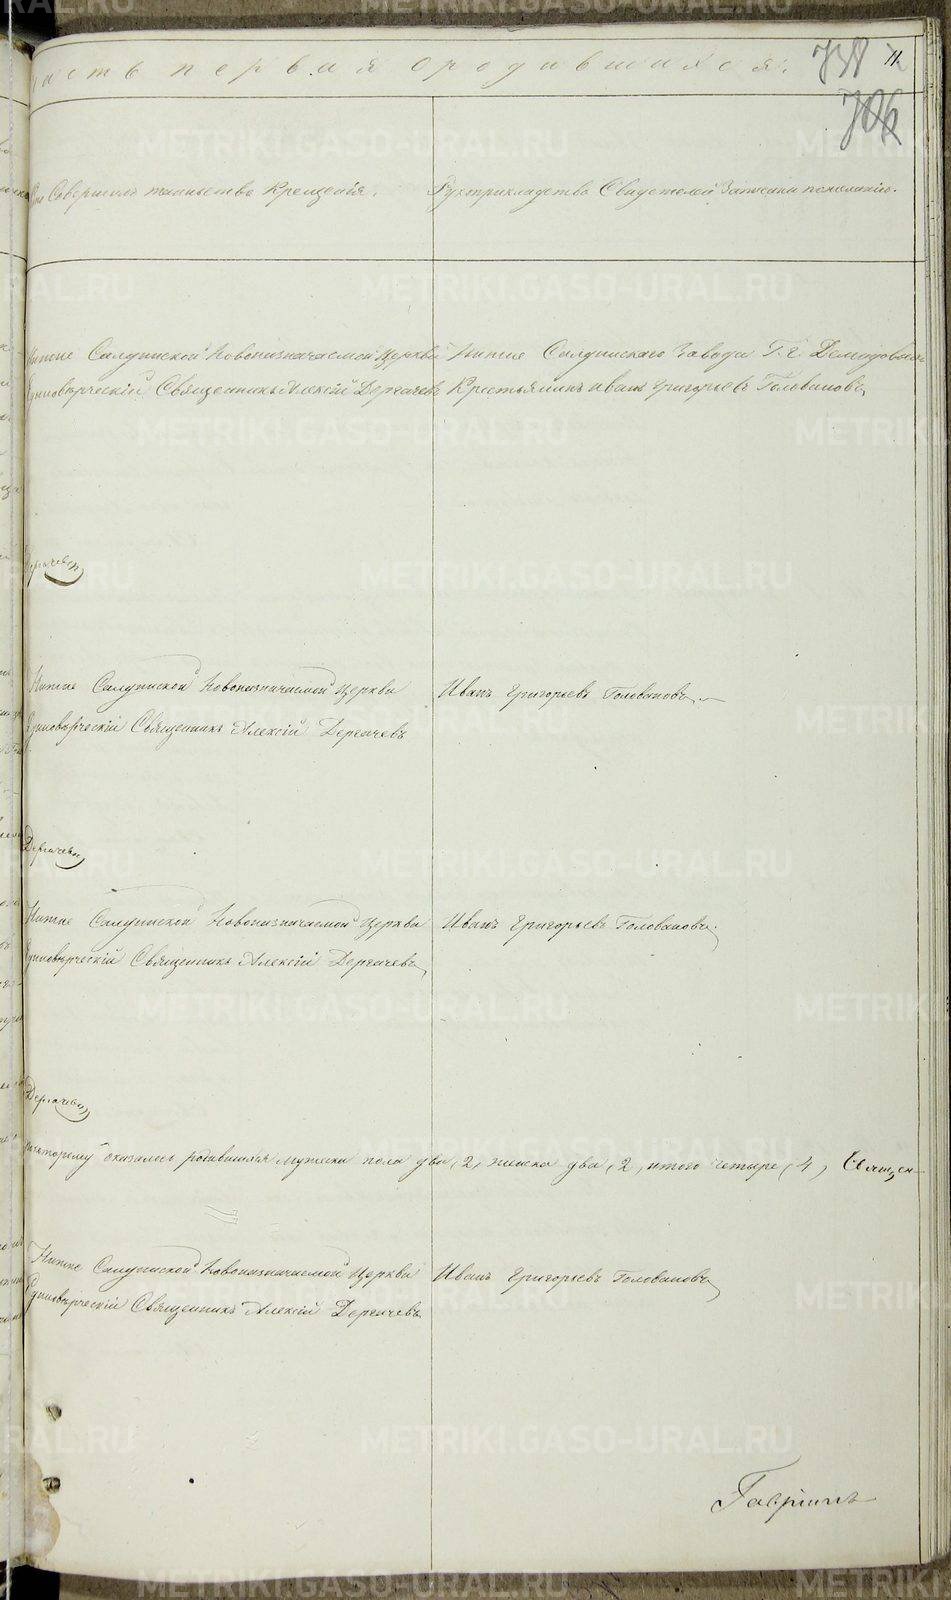 часть первая о родившихся.
738
11.
706
Кто Совершилъ таинство Крещенія.
Рукоприкладство Свидетелей Записки пожеланію.
Нижне Салдинской Новоназначаемой Церкви
Единовѣрческій Священникъ Алексій Дергачевъ
Нижне Салдинскаго Завода Г.г. Демидовыхъ
Крестьянинъ Иванъ Григорьевъ Головановъ
Дергачевъ
Нижне Салдинской Новоназначаемой Церкви
Единовѣрческій Священникъ Алексій Дергачевъ
Иванъ Григорьевъ Головановъ
Дергачевъ
Нижне Салдинской Новоназначаемой Церкви
Единовѣрческій Священникъ Алексій Дергачевъ
Иванъ Григорьевъ Головановъ
Дергачевъ
которому оказалось родившихся мужска пола два, 2, женска два, 2, итого четыре, 4, Священ-
Нижне Салдинской Новоназначаемой Церкви
Единовѣрческій Священникъ Алексій Дергачевъ
Иванъ Григорьевъ Головановъ
Гавріилъ
METRIKI.GASO-URAL.RU